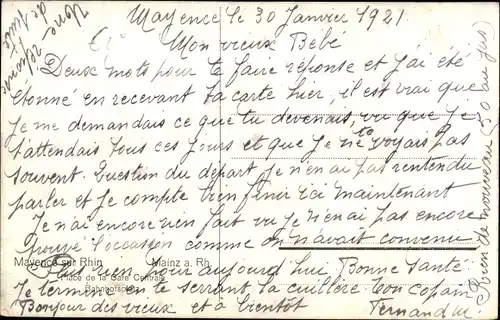 Mayence le 30 Janvier 1921
Mon vieux Bébé
Deux mots pour te faire réponse et j'ai été
étonné en recevant ta carte hier, il est vrai que
je me demandais ce que tu devenais, vu que je
t'attendais tous ces jours et que je ne te voyais pas
souvent. Question du départ je n'en ai pas rentendu
parler et je compte bien finir ici maintenant
Je n'ai encore rien fait vu je n'en ai pas encore
trouvé l'occasion comme on n'avait convenu
Plus rien pour aujourd'hui Bonne Santé
Je termine en te serrant la cuillère ton copain
Bonjour des vieux et à bientôt Fernand M.
Rien de nouveau (50 au jus)
de suite
Mayence sur Rhin
Mainz a. Rh.
Place de la Gare Centrale
Bahnhofsplatz